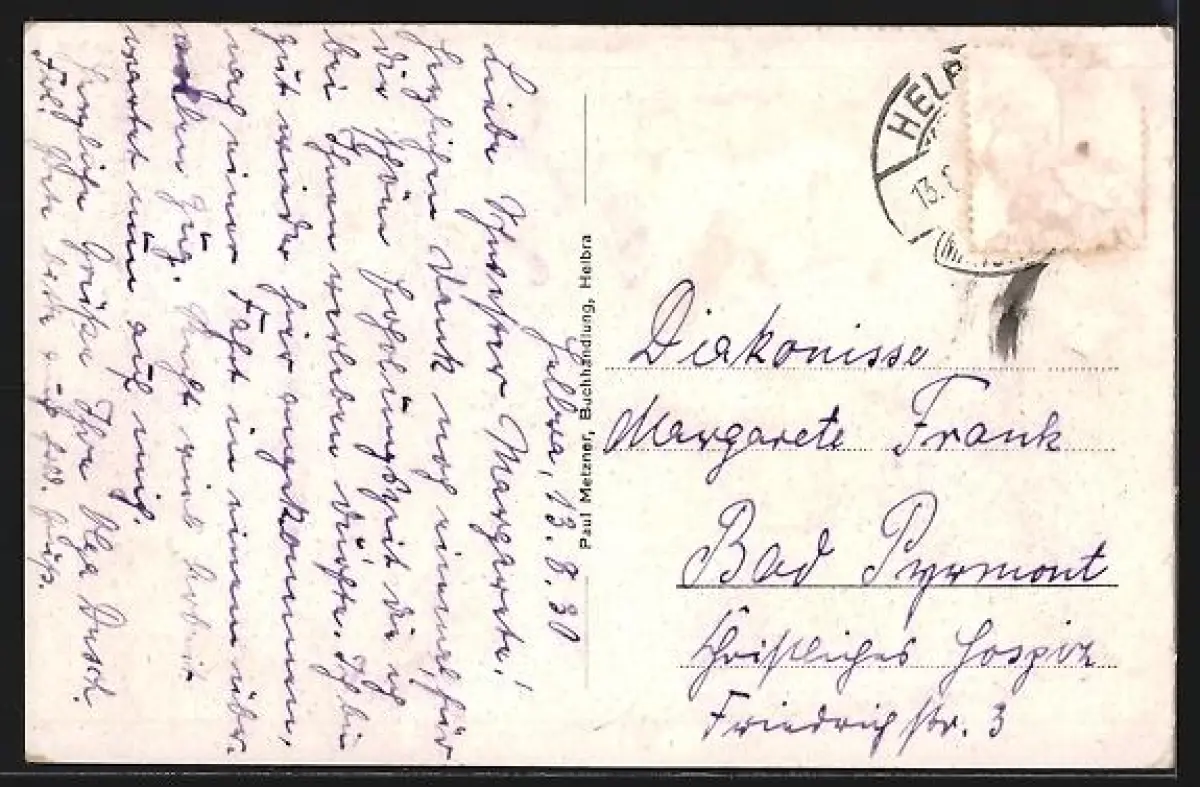 Helbra, 13. 8. 30
Liebe Schwester Margarete!
Herzlichen Dank noch einmal für
die schöne Erholungszeit die ich
bei Ihnen verleben durfte. Ich bin
gut wieder hier angekommen,
nach einer Fahrt in einem über-
Zug. viel Arbeit
wartet nun auf mich.
Herzliche Grüße Ihre Olga
Frl.
Paul Metzner, Buchhandlung, Helbra
HELB
13.
Diakonisse
Margarete Frank
Bad Pyrmont
Christliches Hospiz
Friedrichstr. 3